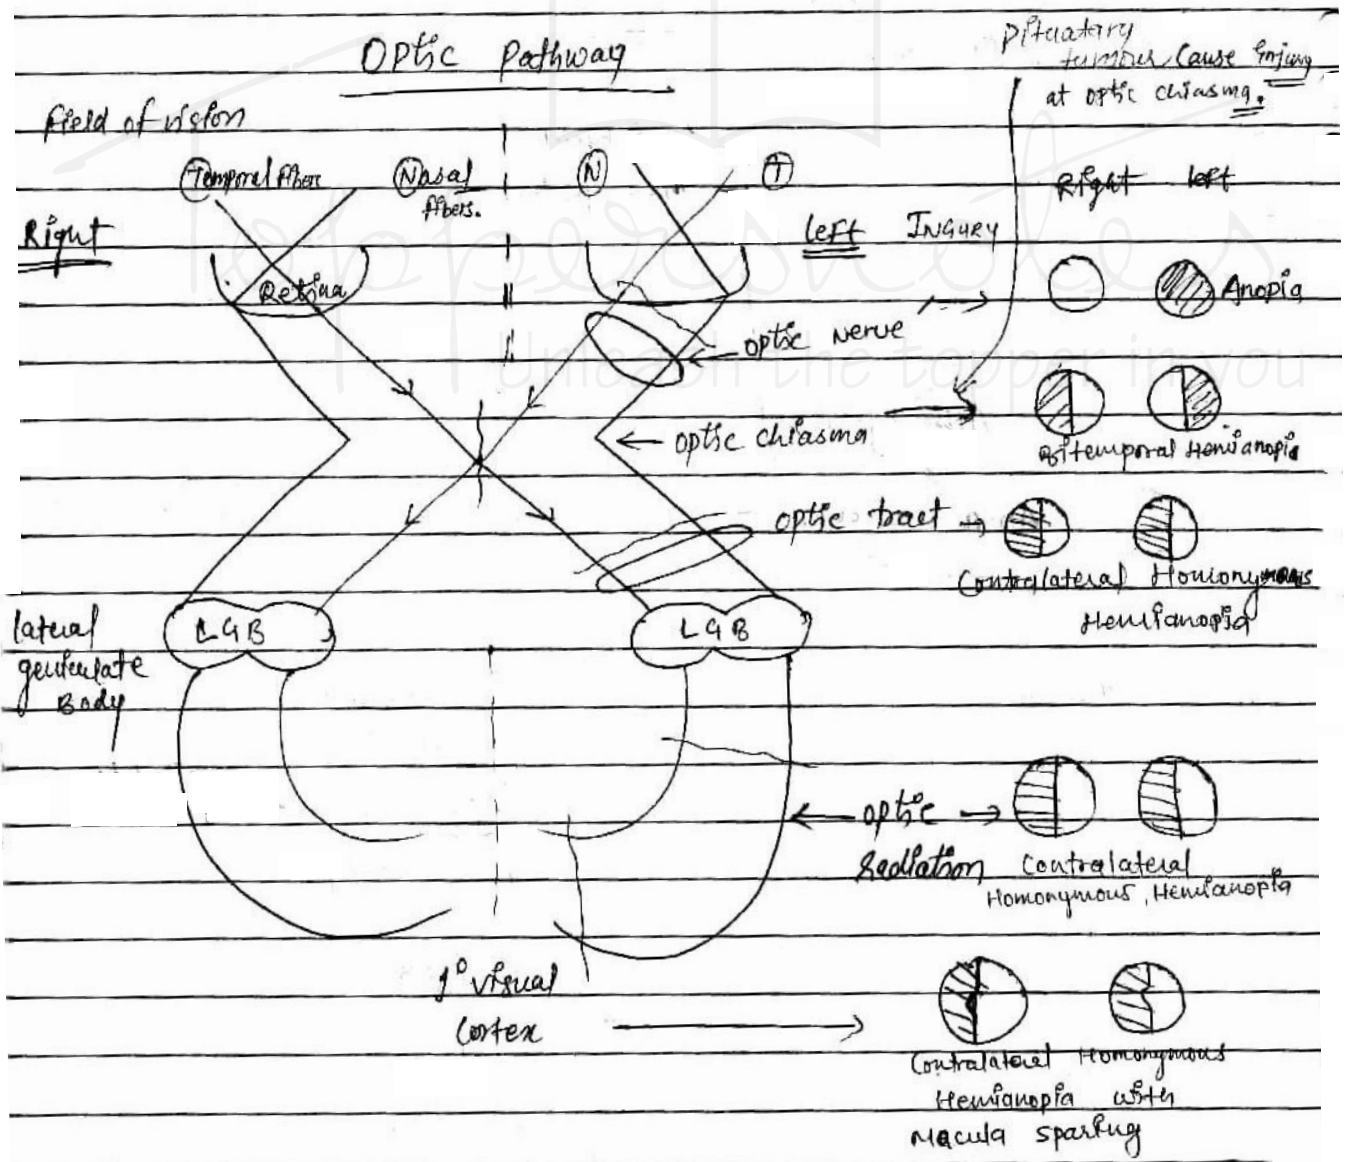 Optic Pathway
Pituatary
tumour Cause Injury
at optic chiasma.
field of vision
Temporal fibers
Nasal
fibers.
N
T
Right
left
Right
Retina
left
INGURY
Anopia
optic nerve
optic chiasma
Bitemporal Hemianopia
optic tract
Contralateral Homonymous
Hemianopia
LGB
LGB
lateral
geniculate
Body
optic
radiation
Contralateral
Homonymous, Hemianopia
1° visual
Cortex
Contralateral Homonymous
Hemianopia with
Macula sparing
Toppersnotes
Unleash the topper in you